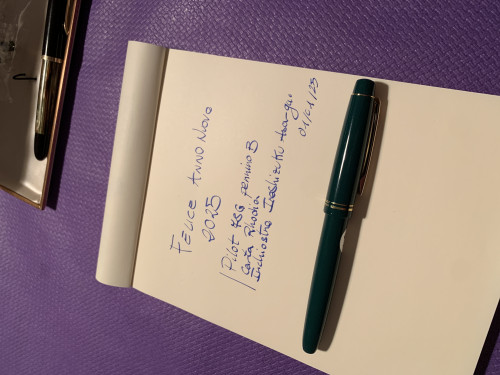 FELICE ANNO NUOVO
2025
Pilot 78G pennino B
Carta Rhodia
Inchiostro Iroshizuku
01/01/25